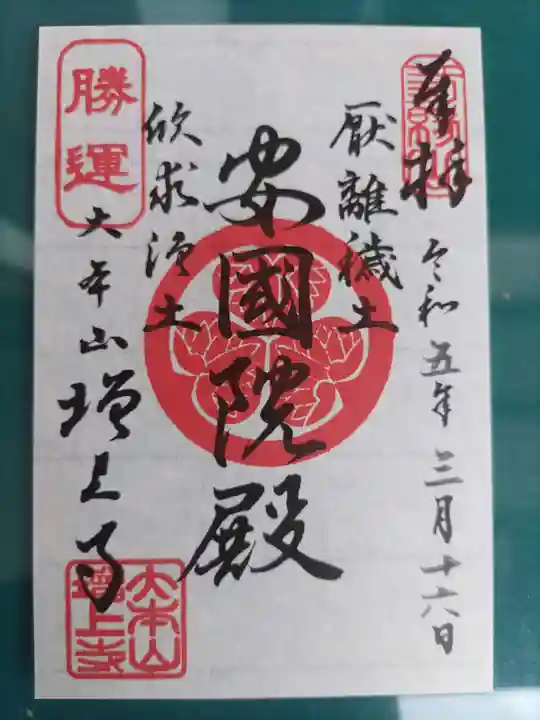 奉拝
令和五年三月十六日
厭離穢土
安國院殿
欣求浄土
勝運
大本山増上寺
大本山
増上寺